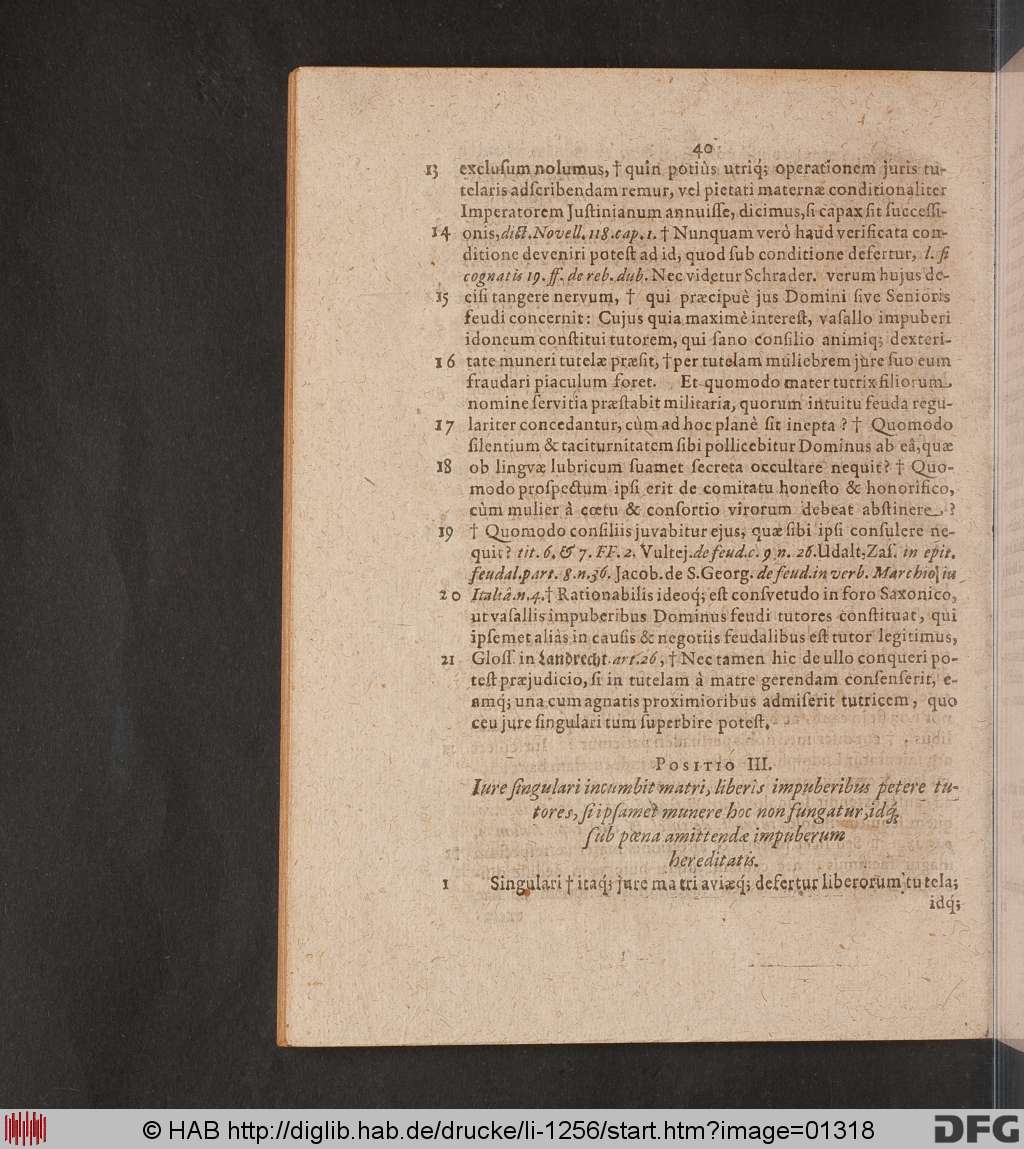 40
13 excluſum nolumus, † quin potiùs utriq́; operationem juris tu-
telaris adſcribendam remur, vel pietati maternæ conditionaliter
Imperatorem Juſtinianum annuiſſe, dicimus, ſi capax ſit ſucceſſi-
14 onis, dict. Novell. 118. cap. 1. † Nunquam verò haud verificata con-
ditione deveniri poteſt ad id, quod ſub conditione defertur, l. ſi
cognatis 19. ff. de reb. dub. Nec videtur Schrader. verum hujus de-
15 ciſi tangere nervum, † qui præcipuè jus Domini ſive Senioris
feudi concernit: Cujus quia maximè intereſt, vaſallo impuberi
idoneum conſtitui tutorem, qui ſano conſilio animiq; dexteri-
16 tate muneri tutelæ præſit, † per tutelam muliebrem jure ſuo eum
fraudari piaculum foret. Et quomodo mater tutrix filiorum
nomine ſervitia præſtabit militaria, quorum intuitu feuda regu-
17 lariter concedantur, cùm ad hoc planè ſit inepta? † Quomodo
ſilentium & taciturnitatem ſibi pollicebitur Dominus ab eâ, quæ
18 ob lingvæ lubricum ſuamet ſecreta occultare nequit? † Quo-
modo proſpectum ipſi erit de comitatu honeſto & honorifico,
cùm mulier à cœtu & conſortio virorum debeat abſtinere?
19 † Quomodo conſiliis juvabitur ejus, quæ ſibi ipſi conſulere ne-
quit? tit. 6. & 7. FF. 2. Vultej. de feud. c. 9 n. 26. Udalr. Zaſ. in epit.
feudal. part. 8. n. 36. Jacob. de S. Georg. de feud. in verb. Marchio in
20 Italiâ. n. 4. † Rationabilis ideoq́; eſt conſvetudo in foro Saxonico,
ut vaſallis impuberibus Dominus feudi tutores conſtituat, qui
ipſemet aliàs in cauſis & negotiis feudalibus eſt tutor legitimus,
21 Gloſſ. in Landrecht. art. 26, † Nec tamen hic de ullo conqueri po-
teſt præjudicio, ſi in tutelam à matre gerendam conſenſerit, e-
amq́; una cum agnatis proximioribus admiſerit tutricem, quo
ceu jure ſingulari tum ſuperbire poteſt.
POSITIO III.
Iure ſingulari incumbit matri, liberis impuberibus petere tu-
tores, ſi ipſamet munere hoc non fungatur, idq́;
ſub pœna amittendæ impuberum
hereditatis.
1 Singulari † itaq́; jure matri aviæq́; defertur liberorum tutela;
idq́;
© HAB http://diglib.hab.de/drucke/li-1256/start.htm?image=01318
DFG